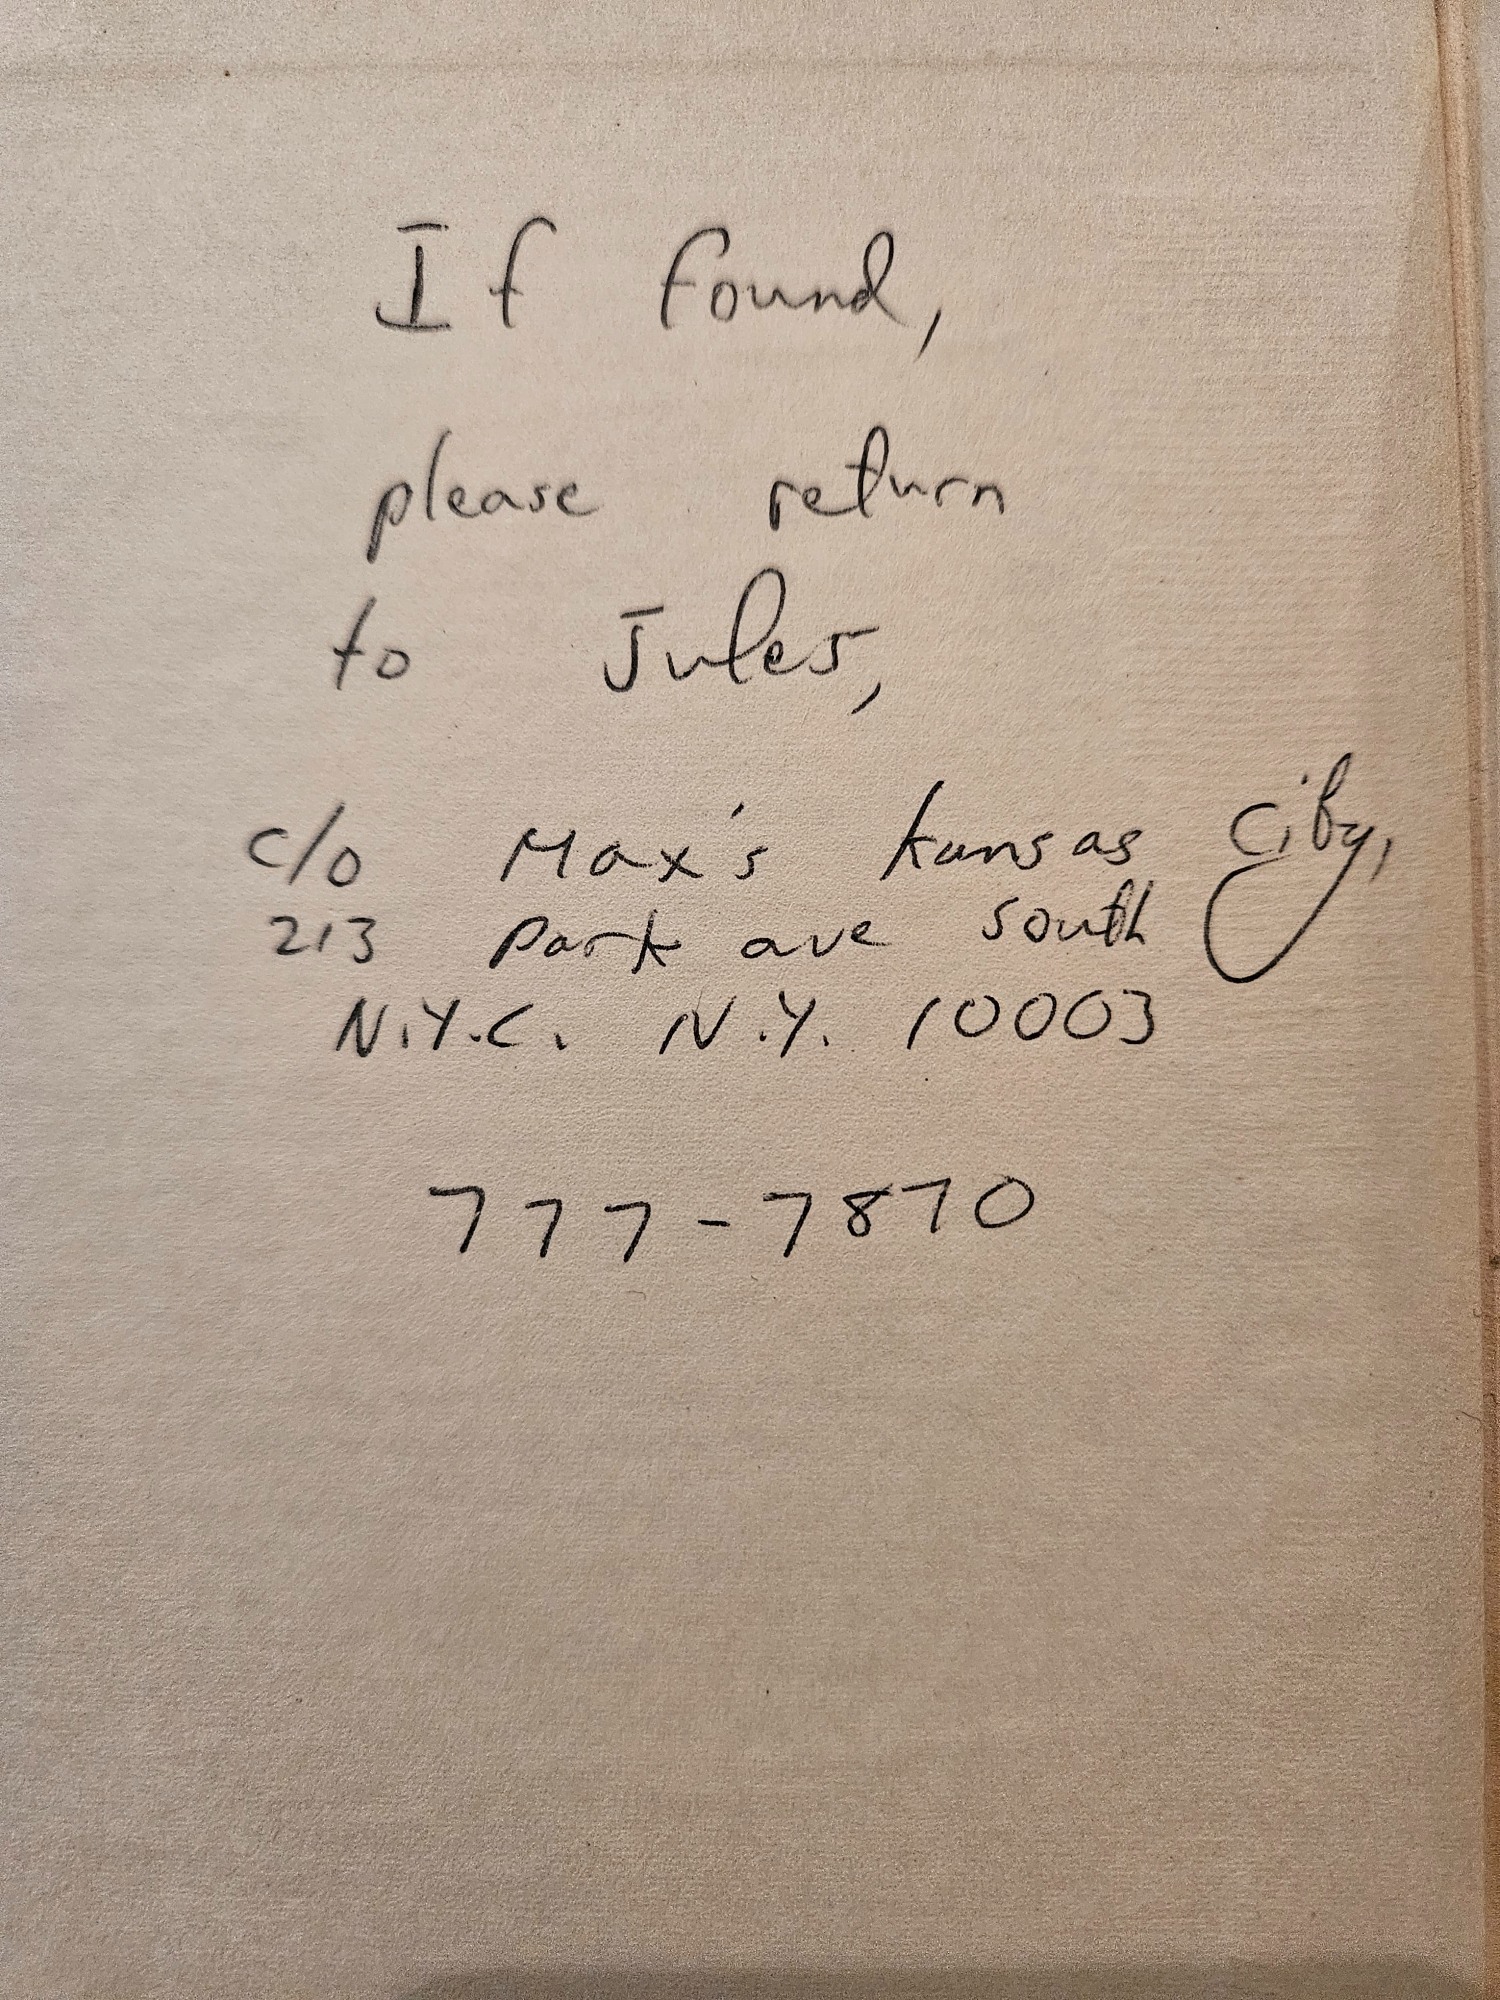 If found,
please return
to Jules,
c/o Max's Kansas City,
213 Park ave south
N.Y.C. N.Y. 10003
777-7870